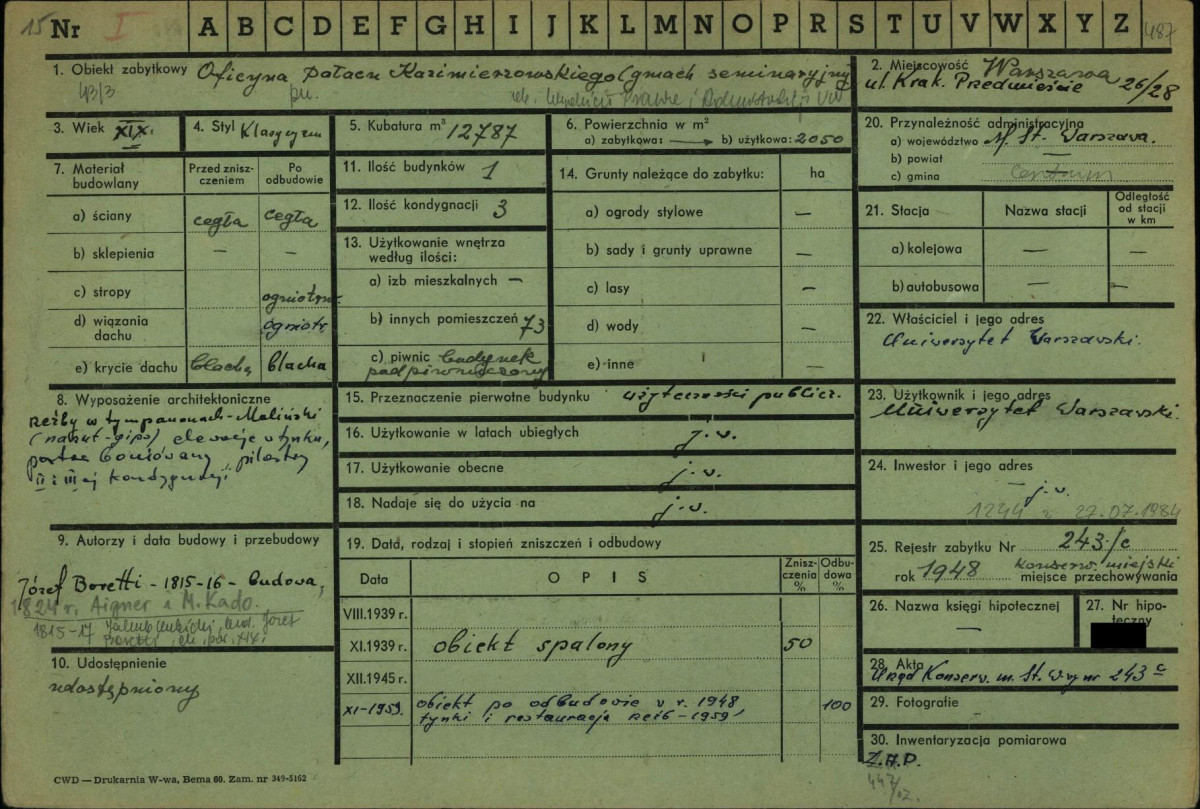 15 Nr I A B C D E F G H I J K L M N O P R S T U V W X Y Z 487
1. Obiekt zabytkowy Oficyna pałacu Kazimierzowskiego (gmach seminaryjny
43/3 pn. ob. Prawa i Administracji UW
2. Miejscowość Warszawa
ul. Krak. Przedmieście 26/28
3. Wiek XIX.
4. Styl Klasycyzm
5. Kubatura m³ 12787
6. Powierzchnia w m²
a) zabytkowa: b) użytkowa: 2050
7. Materiał budowlany
Przed zniszczeniem
Po odbudowie
a) ściany cegła cegła
b) sklepienia — —
c) stropy ogniotrw.
d) wiązania dachu ogniotr.
e) krycie dachu blacha blacha
8. Wyposażenie architektoniczne
rzeźby w tympanonach - Maliński
(narzut-gips) elewacje w tynku,
parter boniowany, pilastry
II i III ej kondygnacji
9. Autorzy i data budowy i przebudowy
Józef Boretti - 1815-16 - budowa,
1824 r. Aigner i M. Kado.
1815-17 Jakub Kubicki, bud. Józef
Boretti,
10. Udostępnienie
udostępniony
11. Ilość budynków 1
12. Ilość kondygnacji 3
13. Użytkowanie wnętrza
według ilości:
a) izb mieszkalnych —
b) innych pomieszczeń 73
c) piwnic budynek
podpiwniczony
14. Grunty należące do zabytku: ha
a) ogrody stylowe —
b) sady i grunty uprawne —
c) lasy —
d) wody —
e) inne —
15. Przeznaczenie pierwotne budynku użyteczności publicz.
16. Użytkowanie w latach ubiegłych j.w.
17. Użytkowanie obecne j.w.
18. Nadaje się do użycia na j.w.
19. Data, rodzaj i stopień zniszczeń i odbudowy
Data OPIS Zniszczenia % Odbudowa %
VIII.1939 r.
XI.1939 r. obiekt spalony 50
XII.1945 r.
XI-1959. obiekt po odbudowie w r. 1948 100
tynki i restauracja rzeźb - 1959
20. Przynależność administracyjna
a) województwo M. St. Warszawa.
b) powiat —
c) gmina Centrum
21. Stacja Nazwa stacji Odległość od stacji w km
a) kolejowa — —
b) autobusowa — —
22. Właściciel i jego adres
Uniwersytet Warszawski.
23. Użytkownik i jego adres
Uniwersytet Warszawski.
24. Inwestor i jego adres
— j.w.
1244 z 27.07.1984
25. Rejestr zabytku Nr 243/c
rok 1948 konserw. miejski
miejsce przechowywania
26. Nazwa księgi hipotecznej
—
27. Nr hipoteczny
28. Akta
Urząd Konserw. m. St. W-wy nr 243 c
29. Fotografie
—
30. Inwentaryzacja pomiarowa
Z.A.P.
CWD — Drukarnia W-wa, Bema 60. Zam. nr 349-5162